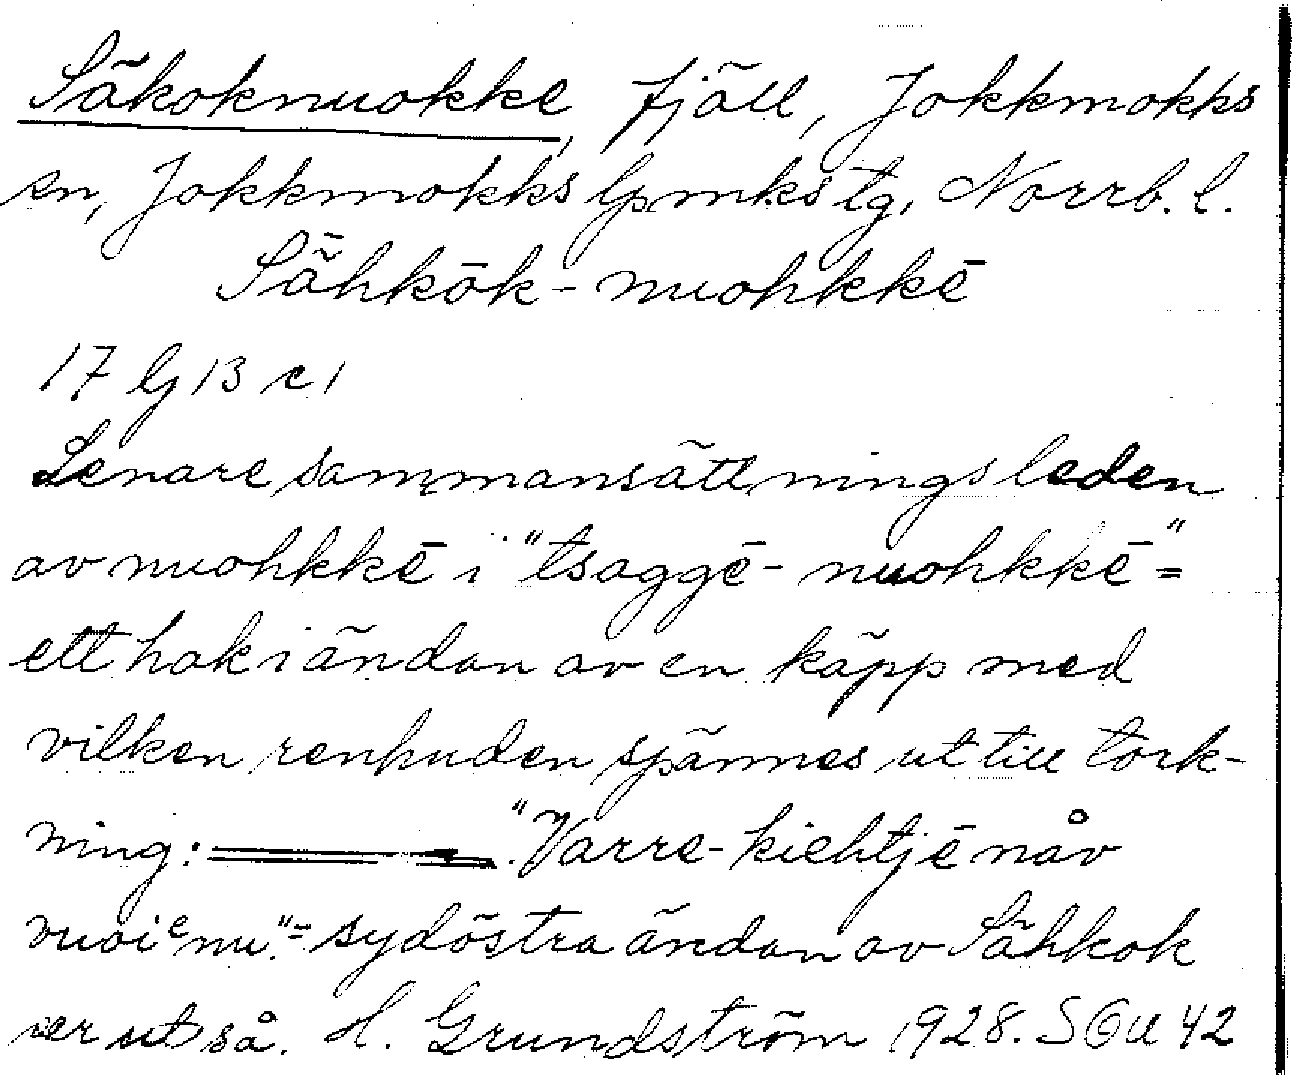 Säkoknuokke, fjäll, Jokkmokks
sn, Jokkmokks lpmks tg, Norrb. l.
Sǟhkōk-nuohkkē
17 G 13 c 1
Senare sammansättningsleden
av nuohkkē i "tsaggē-nuohkkē" =
ett hak i ändan av en käpp med
vilken renhuden spännes ut till tork-
ning: "Varre-kiehtjē nåv
vuoiᵉnu." = sydöstra ändan av Sähkok
ser ut så. H. Grundström 1928. SGU 42